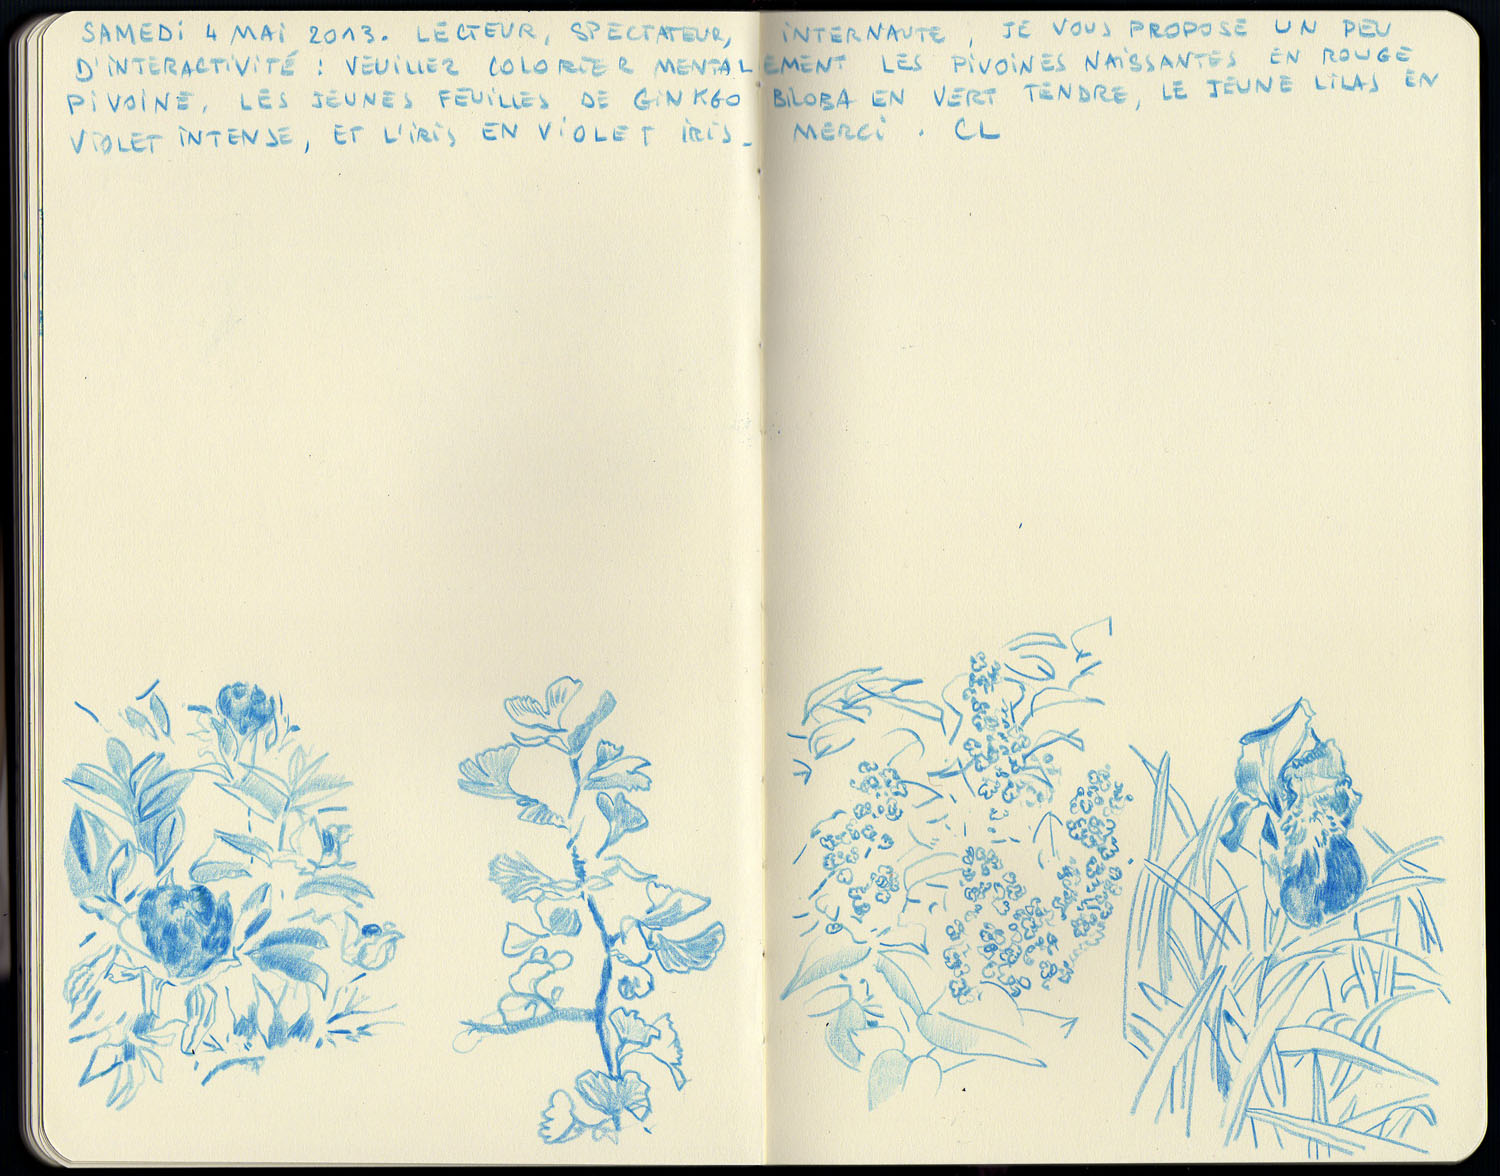 SAMEDI 4 MAI 2013. LECTEUR, SPECTATEUR, INTERNAUTE, JE VOUS PROPOSE UN PEU
D'INTERACTIVITÉ : VEUILLEZ COLORIER MENTALEMENT LES PIVOINES NAISSANTES EN ROUGE
PIVOINE, LES JEUNES FEUILLES DE GINKGO BILOBA EN VERT TENDRE, LE JEUNE LILAS EN
VIOLET INTENSE, ET L'IRIS EN VIOLET IRIS. MERCI. CL